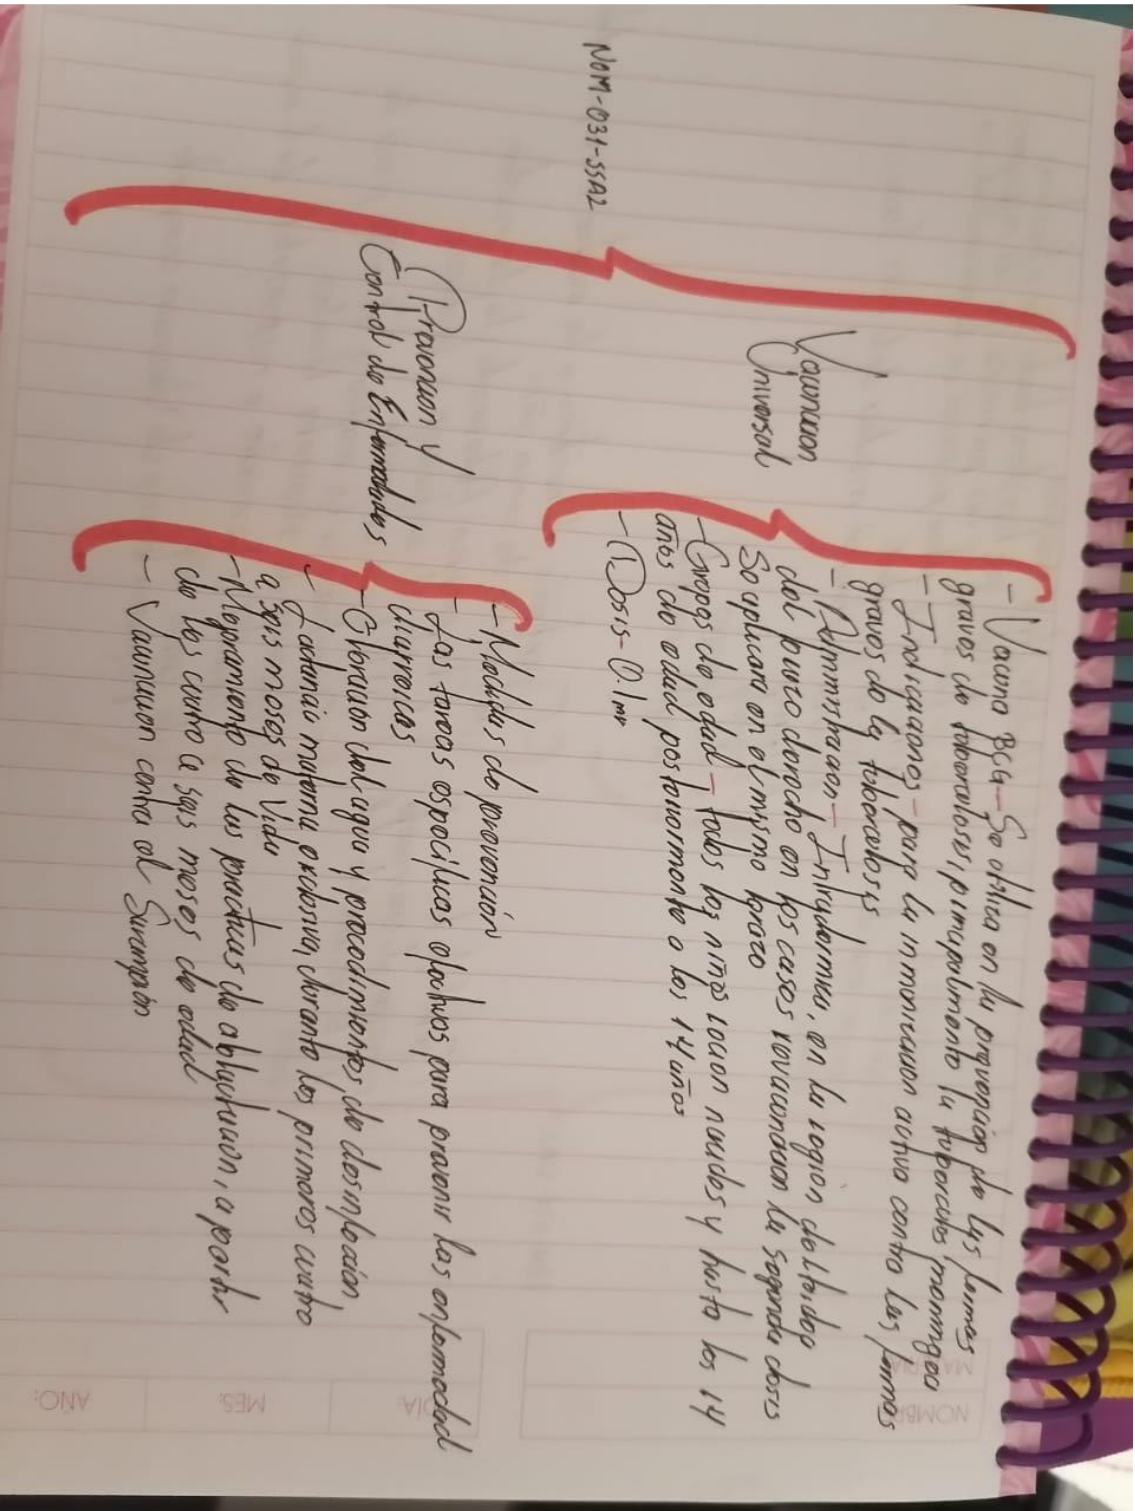 NOM-031-SSA2
Vacunacion
Universal
- Vacuna BCG - Se utiliza en la prevención de las formas
graves de tuberculosis, principalmente la tuberculosis meningea
- Indicaciones - para la inmonización activa contra las formas
graves de la tuberculosis
- Administracion - Intradermica, en la region deltoidea
del brazo derecho en los casos revacunacion la segunda dosis
Se aplicara en el mismo brazo
- Grupos de edad - todos los niños recien nacidos y hasta los 14
años de edad posteriormente a los 14 años
- Dosis - 0.1
Prevencion y
Control de Enfermedades
- Medidas de prevención
- Las tareas especificas efectivas para prevenir las enfermedad
diarreicas
- Cloracion del agua y procedimientos de desinfección,
- Lactancia materna exclusiva, durante los primeros cuatro
a seis meses de vida
- Mejoramiento de las practicas de ablactación, a partir
de los cuatro a seis meses de edad
- Vacunacion contra el Sarampión
MATERIA
NOMBRE
DÍA:
MES:
AÑO: